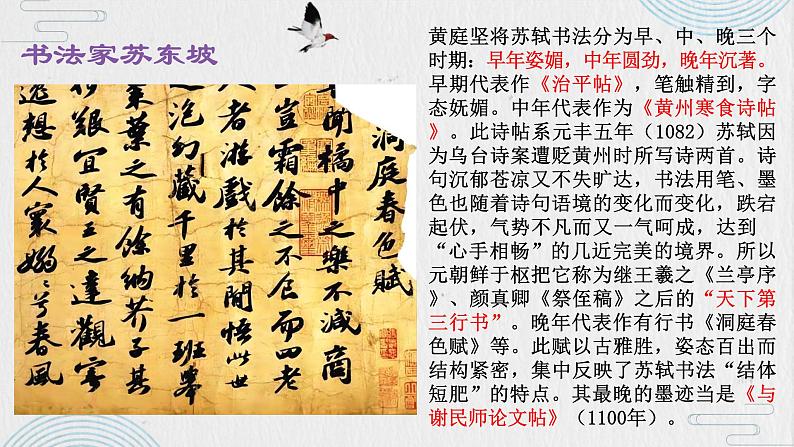 书法家苏东坡
洞庭春色賦
聞橘中之樂不減商
山豈霜餘之不食而四老
人者游戲於其間悟此世
之泡幻藏千里於一班舉
棗葉之有餘納芥子其
何艱宜賢王之達觀寄
逸想於人寰嫋々兮春風
黄庭坚将苏轼书法分为早、中、晚三个
时期：早年姿媚，中年圆劲，晚年沉著。
早期代表作《治平帖》，笔触精到，字
态妩媚。中年代表作为《黄州寒食诗帖
》。此诗帖系元丰五年（1082）苏轼因
为乌台诗案遭贬黄州时所写诗两首。诗
句沉郁苍凉又不失旷达，书法用笔、墨
色也随着诗句语境的变化而变化，跌宕
起伏，气势不凡而又一气呵成，达到
“心手相畅”的几近完美的境界。所以
元朝鲜于枢把它称为继王羲之《兰亭序
》、颜真卿《祭侄稿》之后的“天下第
三行书”。晚年代表作有行书《洞庭春
色赋》等。此赋以古雅胜，姿态百出而
结构紧密，集中反映了苏轼书法“结体
短肥”的特点。其最晚的墨迹当是《与
谢民师论文帖》（1100年）。